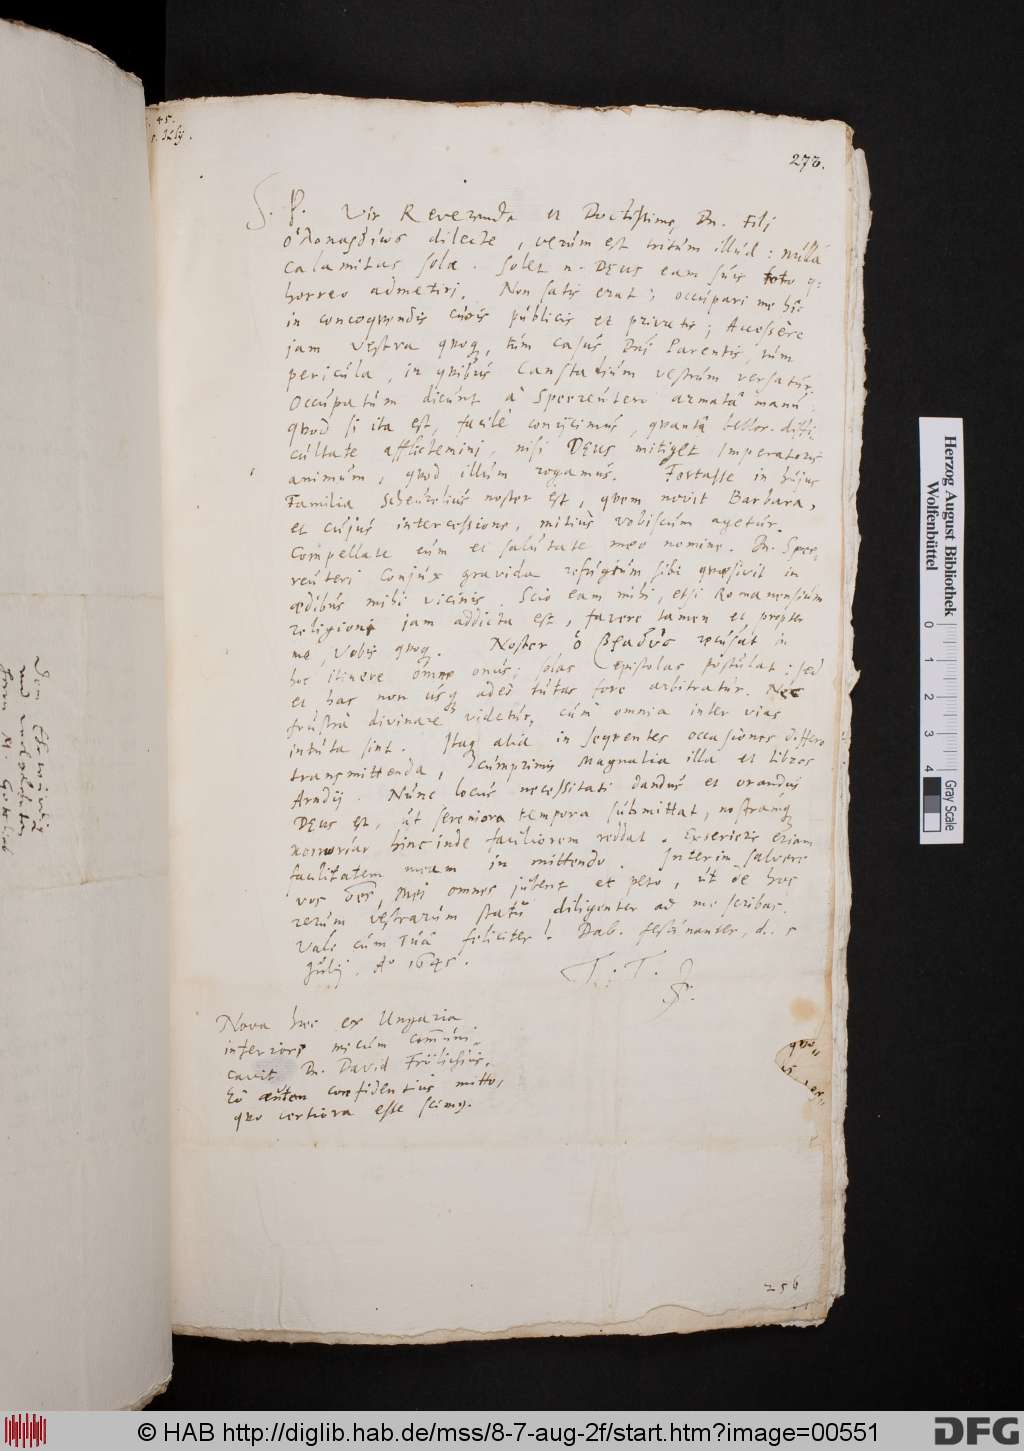 45.
5. July.
273.
S. P. Vir Reverende et Doctissime, Dn. Fili
ὁλοκαρδίως dilecte, verum est tritum illud: nulla
calamitas sola. Solet n. DEus eam suis toto q:
horreo admetiri. Non satis erat; occupari me hic
in concoquendis curis publicis et privatis; Accessere
jam vestra quoq, tum casus Dni Parentis, tum
pericula, in quibus Canstadium vestrum versatur.
Occupatum dicunt à Speereutero armatâ manu.
quod si ita est, facilè conijcimus, quantâ bellor. diffi-
cultate afflictemini, nisi DEus mitiget Imperatoris
animum, quod illum rogamus. Fortasse in hujus
Familia Scheurelius noster est, quem novit Barbara,
et cujus intercessione, mitius vobiscum agetur.
Compellate eum et salutate meo nomine. Dn. Spee-
reuteri conjux gravida refugium sibi quaesivit in
aedibus mihi vicinis. Scio eam mihi, etsi Romanensium
religioni jam addicta est, favere tamen et propter
me, vobis quoq. Noster ὁ recusat in
hoc itinere omne onus; solas epistolas postulat: sed
et has non usq adeo tutas fore arbitratur. Nec
frustrà divinare videtur, cum omnia inter vias
intuta sint. Itaq alia in sequentes occasiones differo
transmittenda, cumprimis Magnalia illa et libros
Arndij. Nunc locus necessitati dandus et orandus
DEus est, ut sereniora tempora submittat, nostramq
hinc inde faciliorem reddat. Experieris etiam
facilitatem meam in mittendo. Interim salvere
vos oes, mei omnes jubent et peto, ut de hoc
rerum vestrarum statu diligenter ad me scribas.
Vale cum Tuâ feliciter! Dab. festinanter, d. 5
Julij. Ao 1645.
T. : T.
S.
Nova haec ex Ungaria
inferiore mecum communi-
cavit Dn. David Frölichius.
Eò autem confidentius mitto,
quo certiora esse scimq.
256
Herzog August Bibliothek
Wolfenbüttel
0 1 2 3 4
Gray Scale
© HAB http://diglib.hab.de/mss/8-7-aug-2f/start.htm?image=00551
DFG